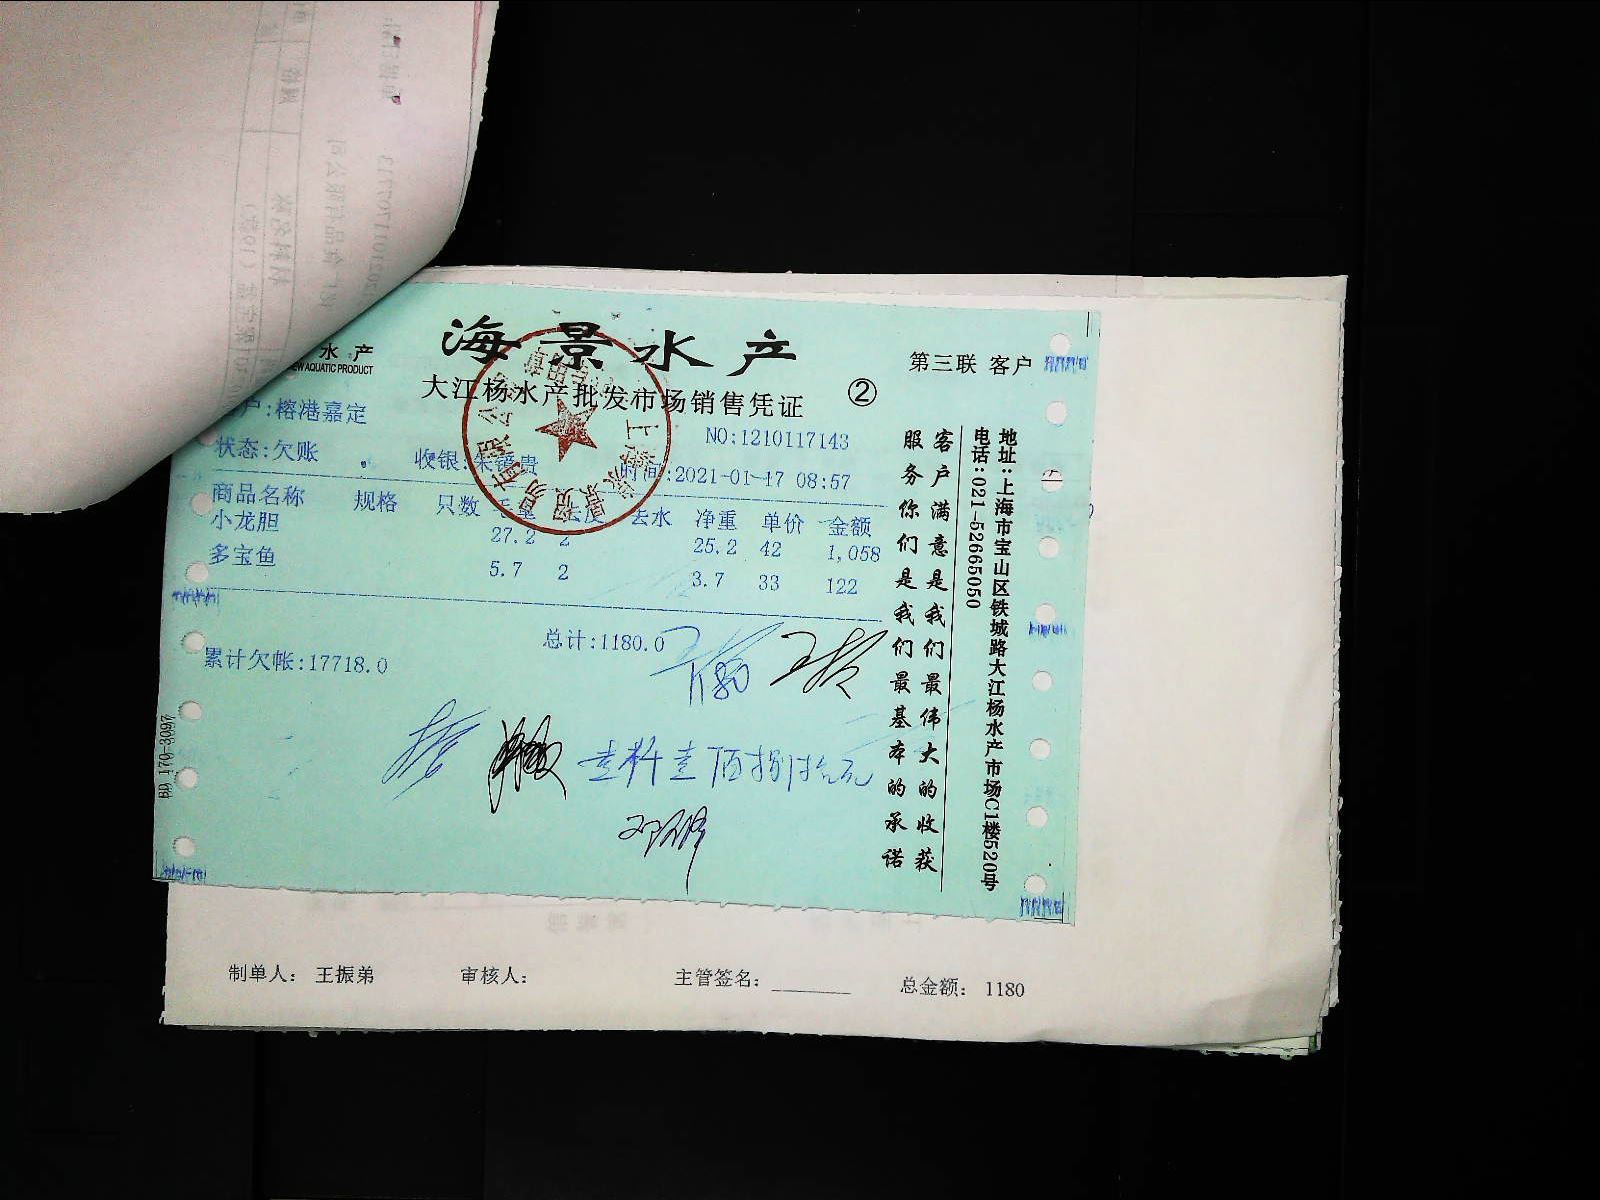 海景水产
水产
EW AQUATIC PRODUCT
大江杨水产批发市场销售凭证
②
第三联 客户
户:榕港嘉定
NO:1210117143
状态:欠账
收银:朱镜贵
时间:2021-01-17 08:57
商品名称 规格 只数 毛重 去皮 去水 净重 单价 金额
小龙胆 27.2 2 25.2 42 1,058
多宝鱼 5.7 2 3.7 33 122
总计:1180.0
累计欠帐:17718.0
1180
壹仟壹佰捌拾元
客户满意是我们最伟大的收获
服务你们是我们最基本的承诺
地址:上海市宝山区铁城路大江杨水产市场C1楼520号
电话:021-52665050
BD 170-3097
制单人: 王振弟 审核人: 主管签名: 总金额: 1180